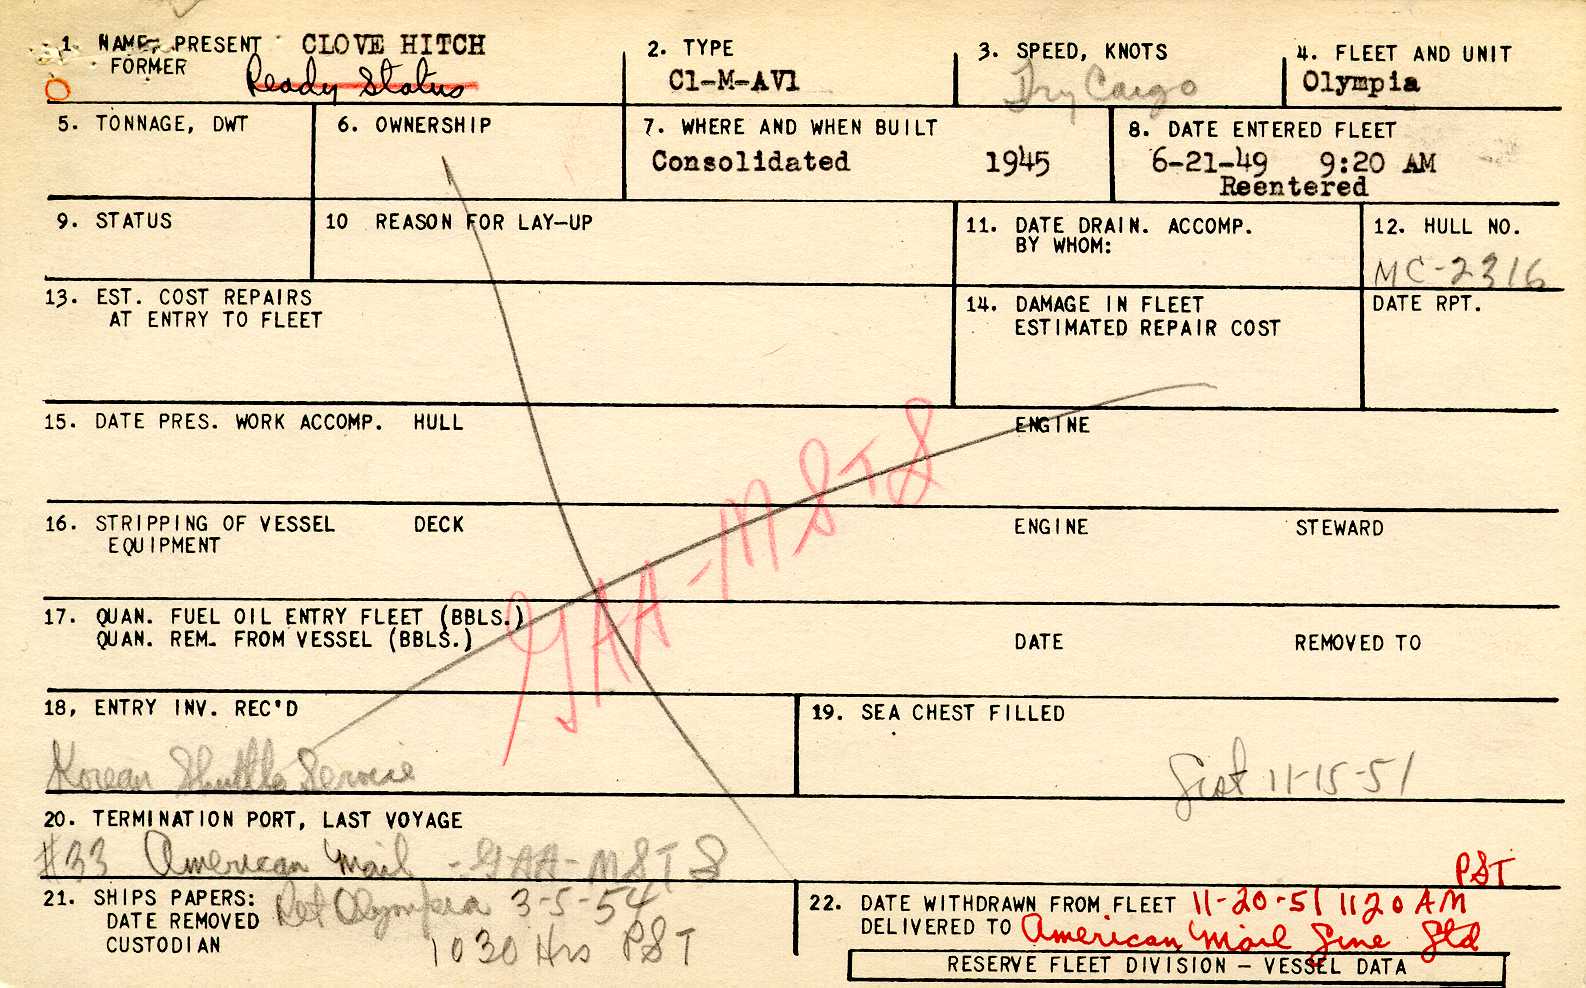 1. NAME, PRESENT CLOVE HITCH
FORMER Ready Status
2. TYPE
C1-M-AV1
3. SPEED, KNOTS
Dry Cargo
4. FLEET AND UNIT
Olympia
5. TONNAGE, DWT
6. OWNERSHIP
7. WHERE AND WHEN BUILT
Consolidated 1945
8. DATE ENTERED FLEET
6-21-49 9:20 AM
Reentered
9. STATUS
10 REASON FOR LAY-UP
11. DATE DRAIN. ACCOMP.
BY WHOM:
12. HULL NO.
MC-2316
13. EST. COST REPAIRS
AT ENTRY TO FLEET
14. DAMAGE IN FLEET
ESTIMATED REPAIR COST
DATE RPT.
15. DATE PRES. WORK ACCOMP. HULL ENGINE
16. STRIPPING OF VESSEL DECK ENGINE STEWARD
EQUIPMENT
GAA-MSTS
17. QUAN. FUEL OIL ENTRY FLEET (BBLS.)
QUAN. REM. FROM VESSEL (BBLS.) DATE REMOVED TO
18, ENTRY INV. REC'D
Korean Shuttle Service
19. SEA CHEST FILLED
11-15-51
20. TERMINATION PORT, LAST VOYAGE
#33 American Mail - GAA-MSTS
21. SHIPS PAPERS: Ret Olympia 3-5-54
DATE REMOVED
CUSTODIAN 1030 Hrs PST
PST
22. DATE WITHDRAWN FROM FLEET 11-20-51 1120 AM
DELIVERED TO American Mail Line Ltd
RESERVE FLEET DIVISION - VESSEL DATA